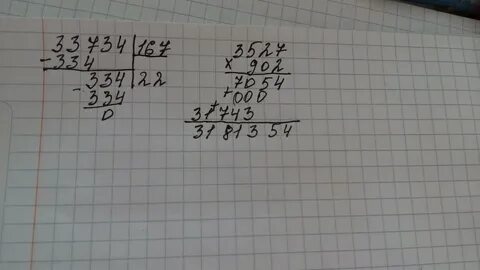 33734 | 167
- 334
334 | 22
- 334
0
3527
x 902
7054
+ 000
+
31743
3181354